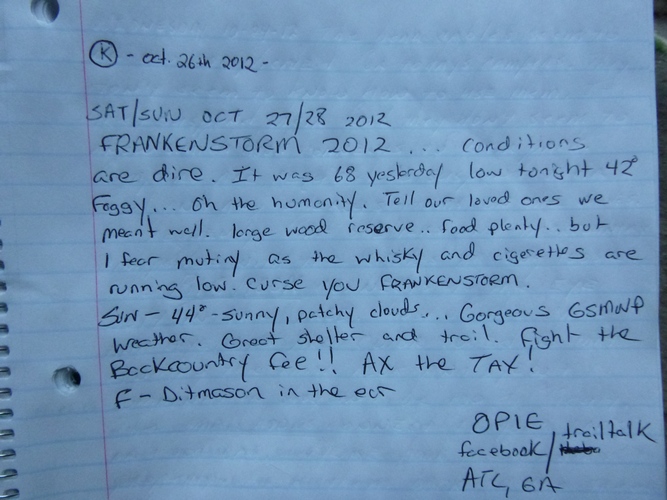 K - Oct. 26th 2012 -
SAT/SUN OCT 27/28 2012
FRANKENSTORM 2012 ... conditions
are dire. It was 68 yesterday low tonight 42°
Foggy... Oh the humanity. Tell our loved ones we
meant well. large wood reserve.. food plenty.. but
I fear mutiny as the whisky and cigerettes are
running low. Curse you FRANKENSTORM.
SUN - 44° - sunny, patchy clouds... Gorgeous GSMNP
weather. Great shelter and trail. Fight the
Backcountry Fee!! AX the TAX!
F - Ditmason in the
OPIE
facebook/trailtalk
ATL, GA